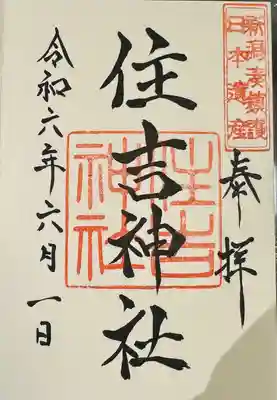 新潟湊鎮護
日本遺産
奉拝
住吉神社
住吉
神社
令和六年六月一日